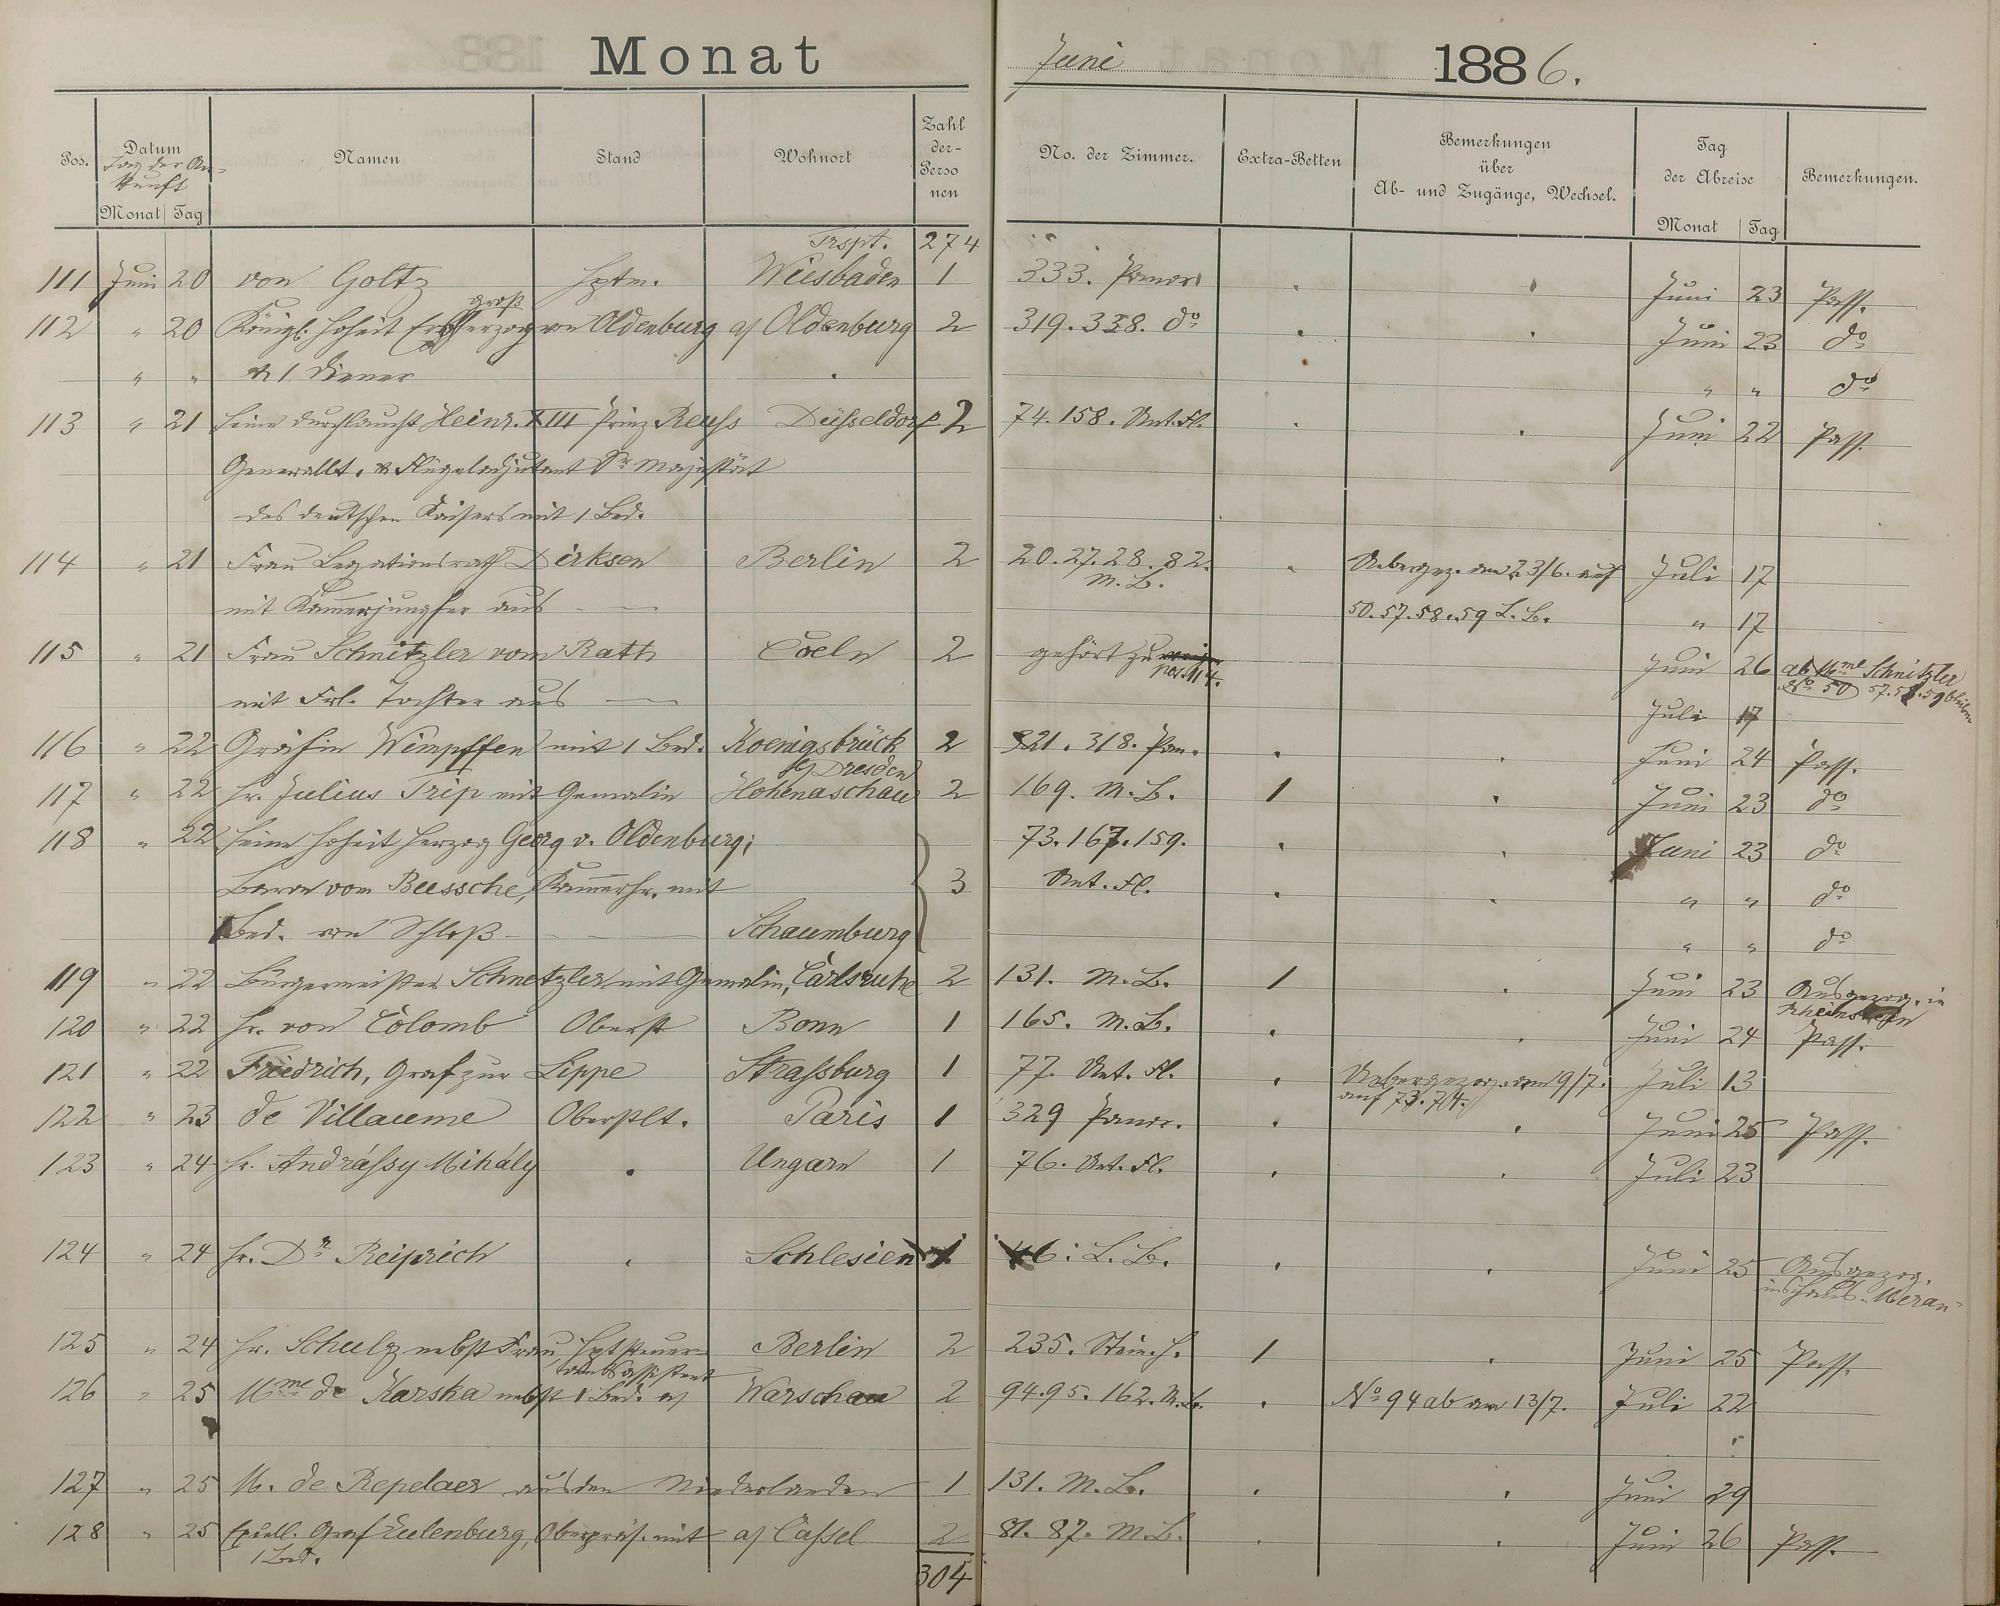 Monat Juni 1886.
Pos. Datum Namen Stand Wohnort Zahl der Personen No. der Zimmer. Extra-Betten Bemerkungen über Ab- und Zugänge, Wechsel. Tag der Abreise Bemerkungen.
Tag der Ankunft
Monat Tag Monat Tag
Trspt. 274
111 Juni 20 von Goltz Hptm. Wiesbaden 1 333. Panor. Juni 23 Pass.
groß
112 " 20 Königl. Hoheit Erbgroßherzog von Oldenburg a/ Oldenburg 2 319. 338. do Juni 23 do
" " & 1 Diener " " do
113 " 21 Seine Durchlaucht Heinr. XIII Prinz Reuss Düsseldorf 2 74. 158. Unt. Fl. Juni 22 Pass.
Generallt. & Flügeladjutant Sr Majestät
des deutschen Kaisers mit 1 Bed.
114 " 21 Frau Legationsrath Dirksen Berlin 2 20. 27. 28. 82. M. B. Uebergez. am 23/6. auf Juli 17
mit Kammerjungfer aus 50. 57. 58. 59 L. B. " 17
115 " 21 Frau Schnitzler vom Rath Coeln 2 gehört zu pos. 114. Juni 26 ab Mme Schnitzler
No 50 57. 58. 59 bleiben
mit Frl. Tochter aus Juli 17
116 " 22 Gräfin Wimpffen mit 1 Bed. Koenigsbrück 2 321. 318. Pan. Juni 24 Pass.
b/ Dresden
117 " 22 Hr. Julius Trip mit Gemalin Hohenaschau 2 169. M. B. 1 Juni 23 do
118 " 22 Seine Hoheit Herzog Georg v. Oldenburg; 73. 167. 159. Juni 23 do
Baron vom Bussche, Kammerhr. mit 3 Unt. Fl. " " do
1 Bed. von Schloß Schaumburg " " do
119 " 22 Bürgermeister Schnetzler mit Gemalin, Carlsruhe 2 131. M. B. 1 Juni 23 Ausgezog. in
Rheinstein
120 " 22 Hr. von Colomb Oberst Bonn 1 165. M. B. Juni 24 Pass.
121 " 22 Friedrich, Graf zur Lippe Strassburg 1 77. Unt. Fl. Uebergezog. am 9/7. Juli 13
auf 73. 74.
122 " 23 de Villaume Oberstlt. Paris 1 329 Panor. Juni 25 Pass.
123 " 24 Hr. Andrássy Mihály Ungarn 1 76. Unt. Fl. Juli 23
124 " 24 Hr. Dr Reiprich Schlesien 1 46. L. B. Juni 25 Ausgezog.
ins Haus Meran
125 " 24 Hr. Schulz nebst Frau, Hptsteuer- Berlin 2 235. Stein. H. 1 Juni 25 Pass.
amtsassistent
126 " 25 Mme de Karska nebst 1 Bed. a/ Warschau 2 94. 95. 162. M. B. No 94 ab am 13/7. Juli 22
127 " 25 M. de Repelaer aus den Niederlanden 1 131. M. B. Juni 29
128 " 25 Excell. Graf Eulenburg, Oberpräs. mit a/ Cassel 2 81. 87. M. B. Juni 26 Pass.
1 Bed.
304